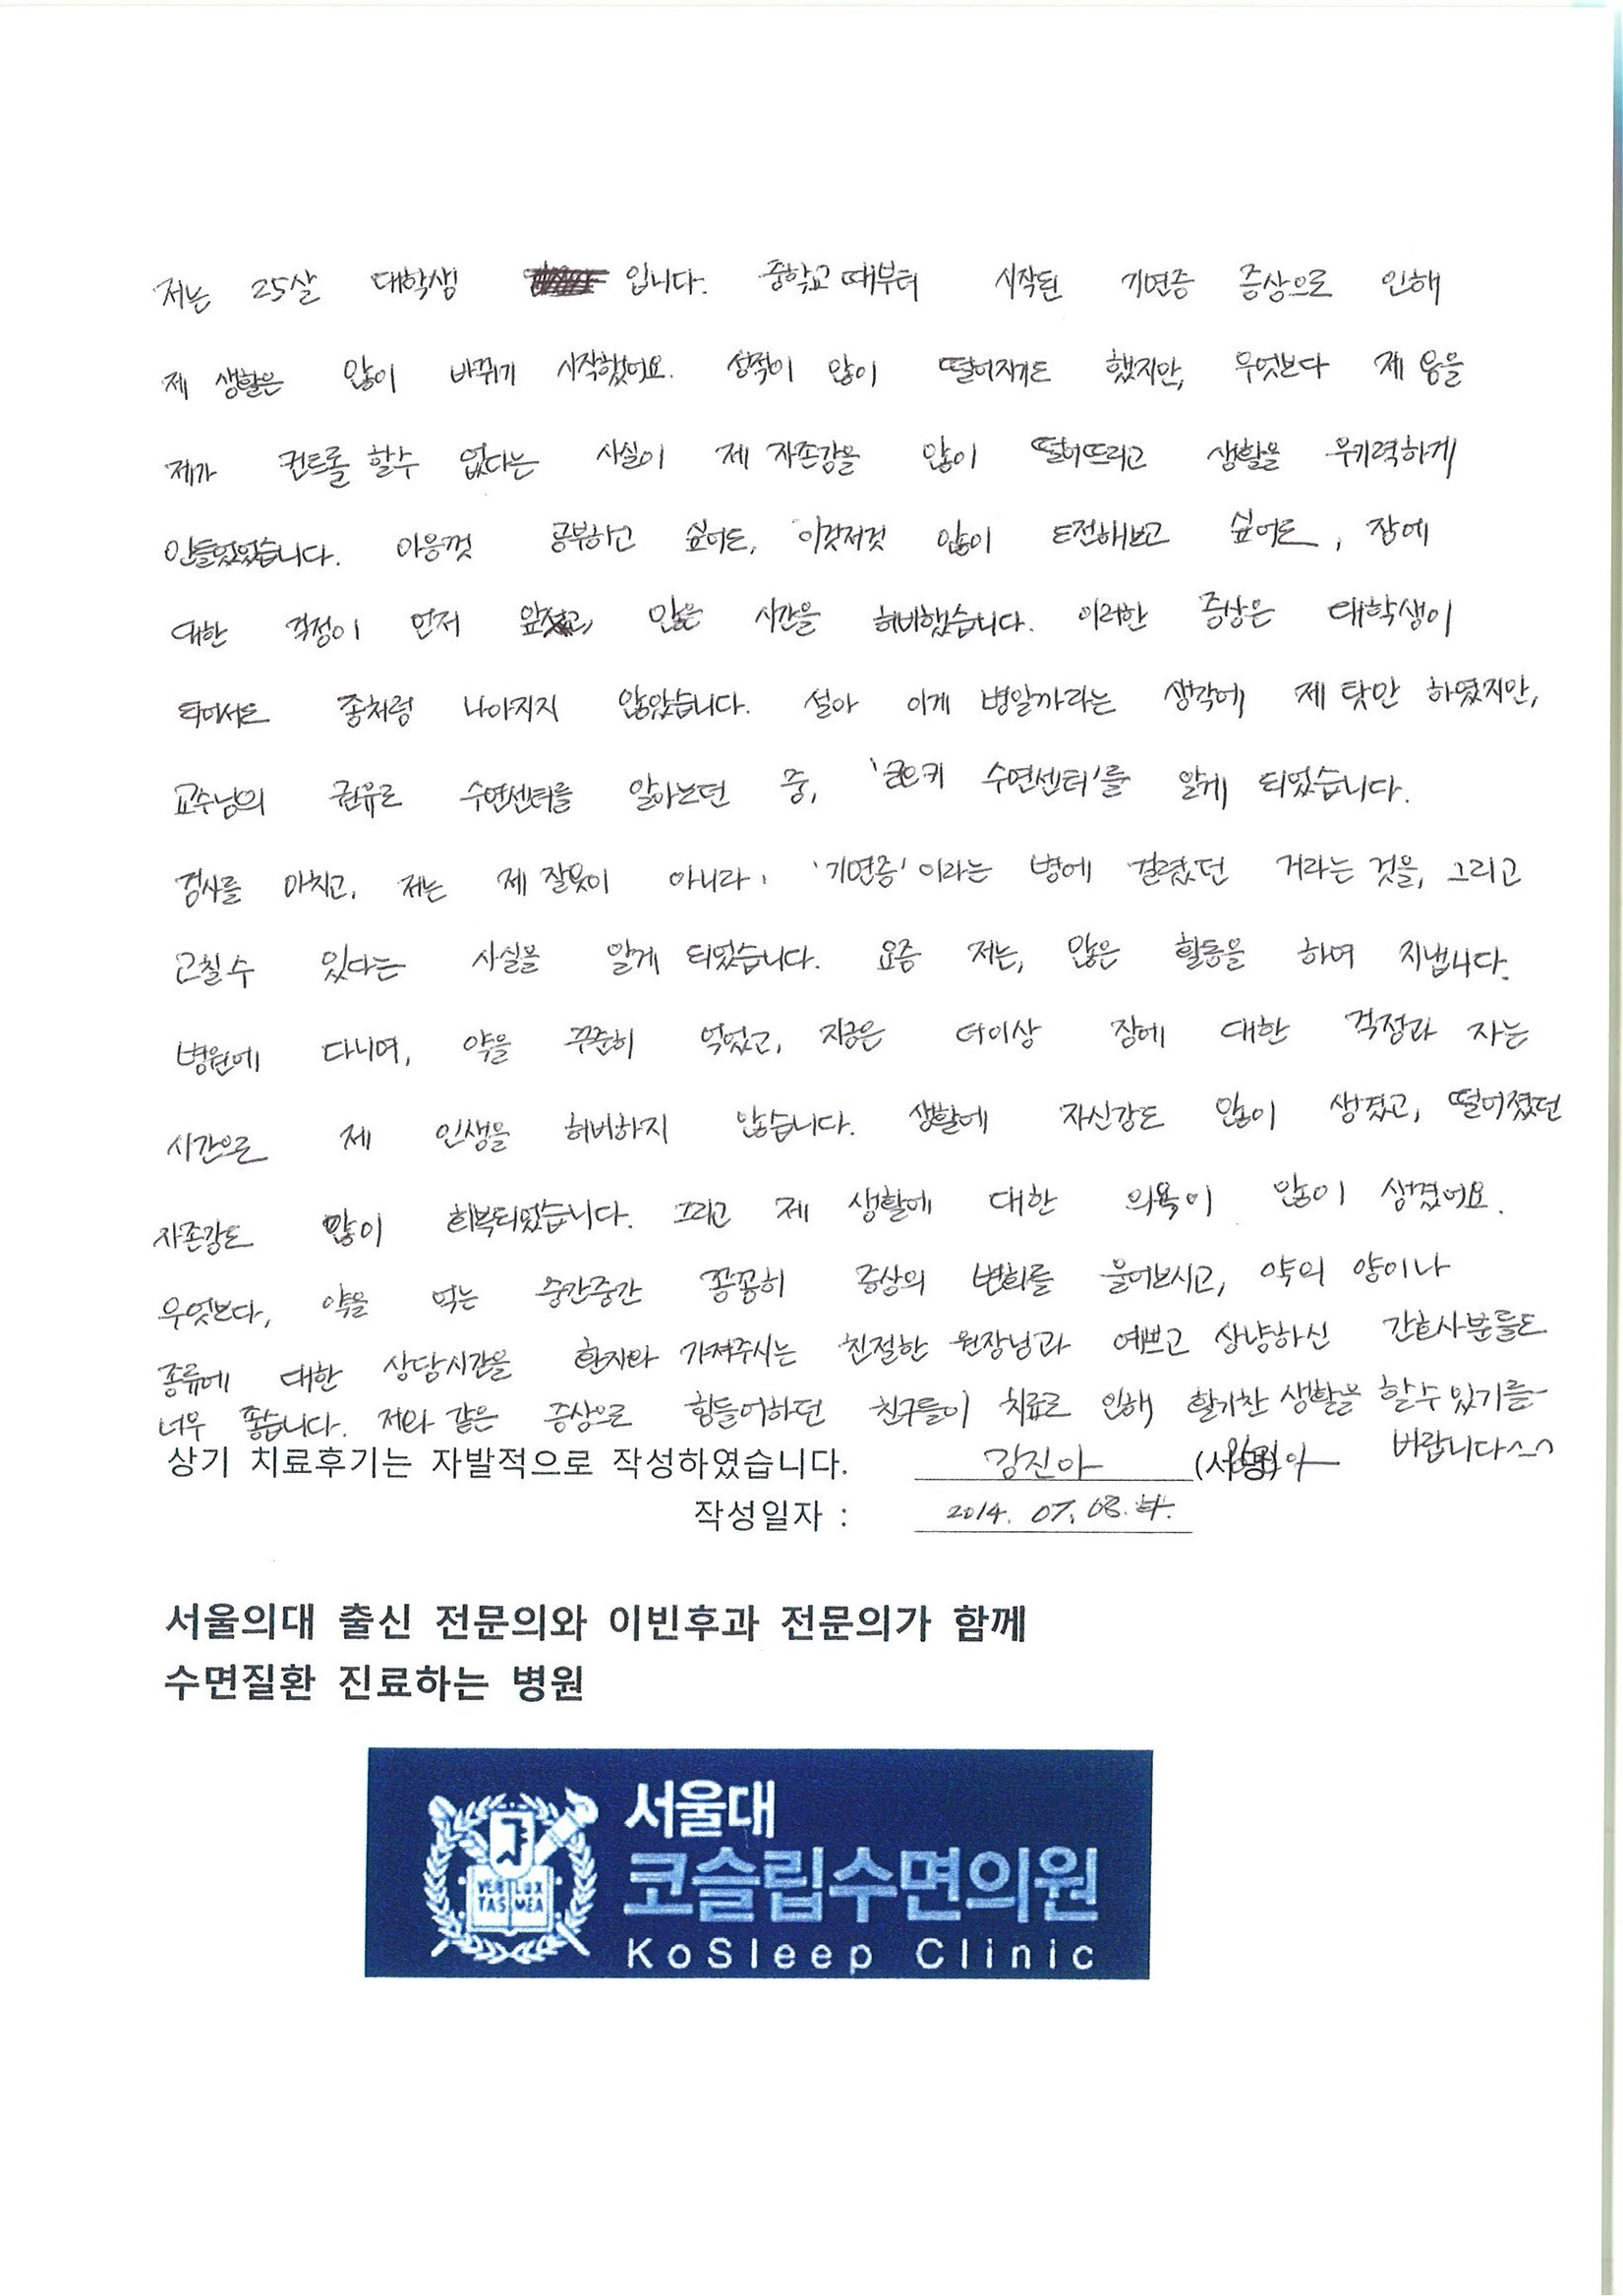 저는 25살 대학생 입니다. 중학교 때부터 시작된 기면증 증상으로 인해
제 생활은 많이 바뀌기 시작했어요. 성적이 많이 떨어지기도 했지만, 무엇보다 제 몸을
제가 컨트롤 할수 없다는 사실이 제 자존감을 많이 떨어뜨리고 생활을 무기력하게
만들었었습니다. 마음껏 공부하고 싶어도, 이것저것 많이 도전해보고 싶어도, 잠에
대한 걱정이 먼저 많은 시간을 허비했습니다. 이러한 증상은 대학생이
되어서도 좀처럼 나아지지 않았습니다. 설마 이게 병일까라는 생각에 제 탓만 하였지만,
교수님의 권유로 수면센터를 알아보던 중, 수면센터'를 알게 되었습니다.
검사를 마치고, 저는 제 잘못이 아니라, '기면증'이라는 병에 걸렸던 거라는 것을, 그리고
고칠수 있다는 사실을 알게 되었습니다. 요즘 저는, 많은 활동을 하며 지냅니다.
병원에 다니며, 약을 꾸준히 먹었고, 지금은 더이상 잠에 대한 걱정과 자는
시간으로 제 인생을 허비하지 않습니다. 생활에 자신감도 많이 생겼고, 떨어졌던
자존감도 많이 회복되었습니다. 그리고 제 생활에 대한 의욕이 많이 생겼어요.
무엇보다, 약을 먹는 중간중간 꼼꼼히 증상의 변화를 물어보시고, 약의 양이나
종류에 대한 상담시간을 환자와 가져주시는 친절한 원장님과 예쁘고 상냥하신 간호사분들도
너무 좋습니다. 저와 같은 증상으로 힘들어하던 친구들이 치료로 인해 활기찬 생활을 할수있기를
바랍니다^^
상기 치료후기는 자발적으로 작성하였습니다. 김진아 (서명)
작성일자 : 2014. 07. 08. 화.
서울의대 출신 전문의와 이빈후과 전문의가 함께
수면질환 진료하는 병원
VERI LUX
TAS MEA
서울대
코슬립수면의원
KoSleep Clinic